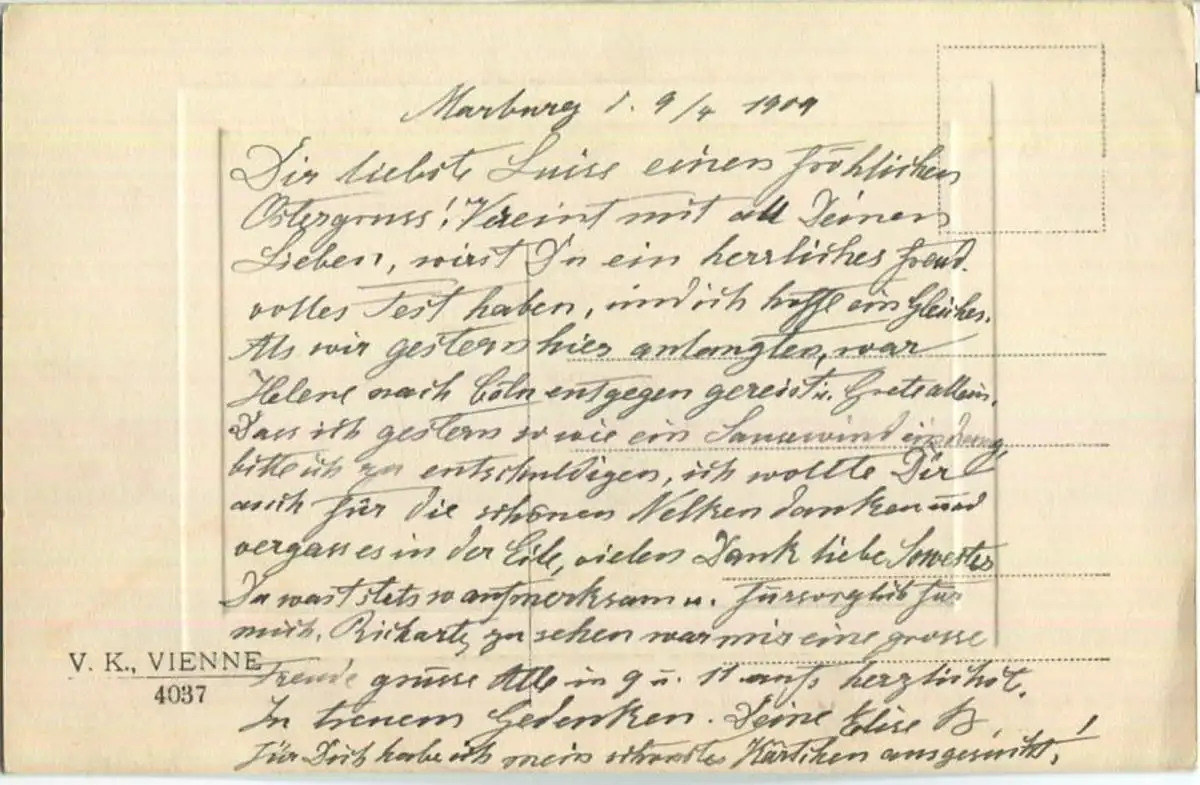 Marburg d. 9/4 1909
Dir liebste Luise einen fröhlichen
Ostergruss! Vereint mit all Deinen
Lieben, wirst Du ein herrliches freud-
volles Fest haben, und ich hoffe ein Gleiches.
Als wir gestern hier anlangten, war
Helene nach Cöln entgegen gereist u. Grete allein.
Dass ich gestern so wie ein Sausewind eindrang,
bitte ich zu entschuldigen, ich wollte Dir
auch für die schönen Nelken danken und
vergass es in der Eile, vielen Dank liebe Swester
Du warst stets so aufmerksam u. fürsorglich für
mich. Rickarts zu sehen war mir eine grosse
V. K., VIENNE
4037
Freude grüsse Alle in 9 u. 11 aufs herzlichst.
In treuem Gedenken. Deine Elise B.
Für Dich habe ich mein schönstes Kärtchen ausgesucht!